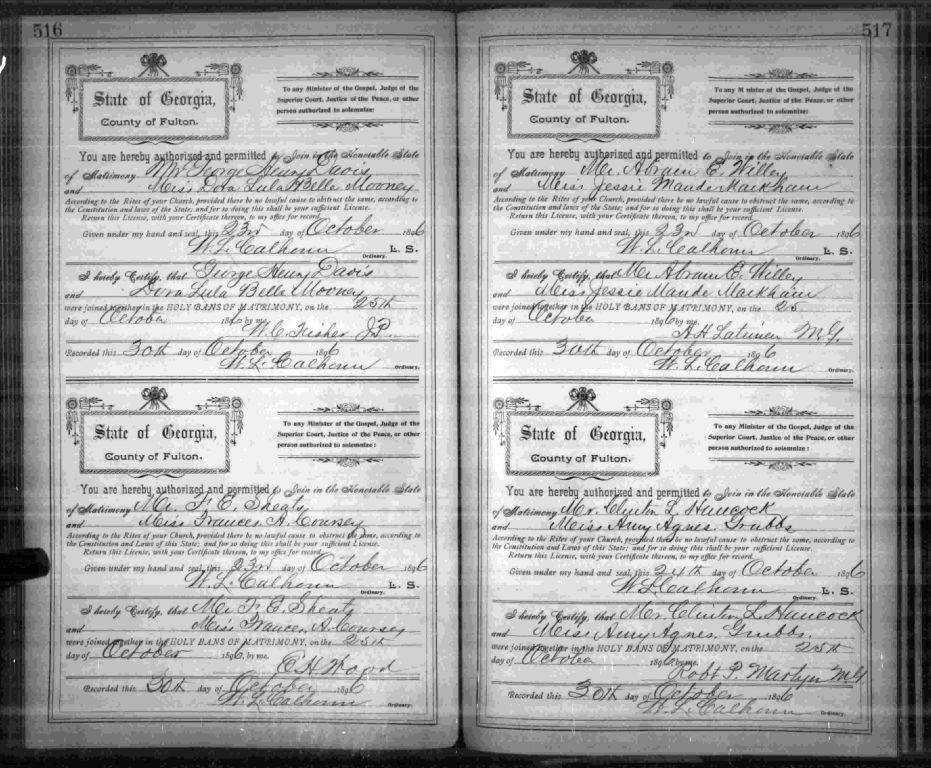 516
State of Georgia,
County of Fulton.
To any Minister of the Gospel, Judge of the
Superior Court, Justice of the Peace, or other
person authorized to solemnize:
You are hereby authorized and permitted to Join in the Honorable State
of Matrimony Mr George Henry Davis
and Miss Dora Lula Bella Mooney
According to the Rites of your Church, provided there be no lawful cause to obstruct the same, according to
the Constitution and laws of the State; and for so doing this shall be your sufficient License.
Return this License, with your Certificate thereon, to my office for record.
Given under my hand and seal, this 23rd day of October 1896
W. L. Calhoun L. S.
Ordinary.
I hereby Certify, that George Henry Davis
and Dora Lula Bella Mooney
were joined together in the HOLY BANS OF MATRIMONY, on the 25th
day of October 1896 by me.
W. C. Fisher JP.
Recorded this 30th day of October 1896
W. L. Calhoun Ordinary.
State of Georgia,
County of Fulton.
To any Minister of the Gospel, Judge of the
Superior Court, Justice of the Peace, or other
person authorized to solemnize:
You are hereby authorized and permitted to Join in the Honorable State
of Matrimony Mr. F. E. Sheats
and Miss Frances A. Coursey
According to the Rites of your Church, provided there be no lawful cause to obstruct the same, according to
the Constitution and Laws of this State; and for so doing this shall be your sufficient License.
Return this License, with your Certificate thereon, to my office for record.
Given under my hand and seal, this 23rd day of October 1896
W. L. Calhoun L. S.
Ordinary.
I hereby Certify, that Mr. F. E. Sheats
and Miss Frances A. Coursey
were joined together in the HOLY BANS OF MATRIMONY, on the 25th
day of October 1896, by me.
E. H. Wood
Recorded this 30th day of October 1896
W. L. Calhoun Ordinary.
517
State of Georgia,
County of Fulton.
To any Minister of the Gospel, Judge of the
Superior Court, Justice of the Peace, or other
person authorized to solemnize:
You are hereby authorized and permitted to Join in the Honorable State
of Matrimony Mr. Abram E. Willey
and Miss Jessie Maude Markham
According to the Rites of your Church, provided there be no lawful cause to obstruct the same, according to
the Constitution and laws of the State; and for so doing this shall be your sufficient License.
Return this License, with your Certificate thereon, to my office for record.
Given under my hand and seal, this 23rd day of October 1896
W. L. Calhoun L. S.
Ordinary.
I hereby Certify, that Mr Abram E. Willey
and Miss Jessie Maude Markham
were joined together in the HOLY BANS OF MATRIMONY, on the 25
day of October 1896 by me.
A H M.G.
Recorded this 30th day of October 1896
W. L. Calhoun Ordinary.
State of Georgia,
County of Fulton.
To any Minister of the Gospel, Judge of the
Superior Court, Justice of the Peace, or other
person authorized to solemnize:
You are hereby authorized and permitted to Join in the Honorable State
of Matrimony Mr. Clinton L. Hancock
and Miss Amy Agnes Grubbs
According to the Rites of your Church, provided there be no lawful cause to obstruct the same, according to
the Constitution and Laws of this State; and for so doing this shall be your sufficient License.
Return this License, with your Certificate thereon, to my office for record.
Given under my hand and seal, this 24th day of October 1896
W. L. Calhoun L. S.
Ordinary.
I hereby Certify, that Mr. Clinton L. Hancock
and Miss Amy Agnes Grubbs.
were joined together in the HOLY BANS OF MATRIMONY, on the 25th
day of October 1896 by me.
Robt P. Martyn M G
Recorded this 30th day of October 1896
W. L. Calhoun Ordinary.